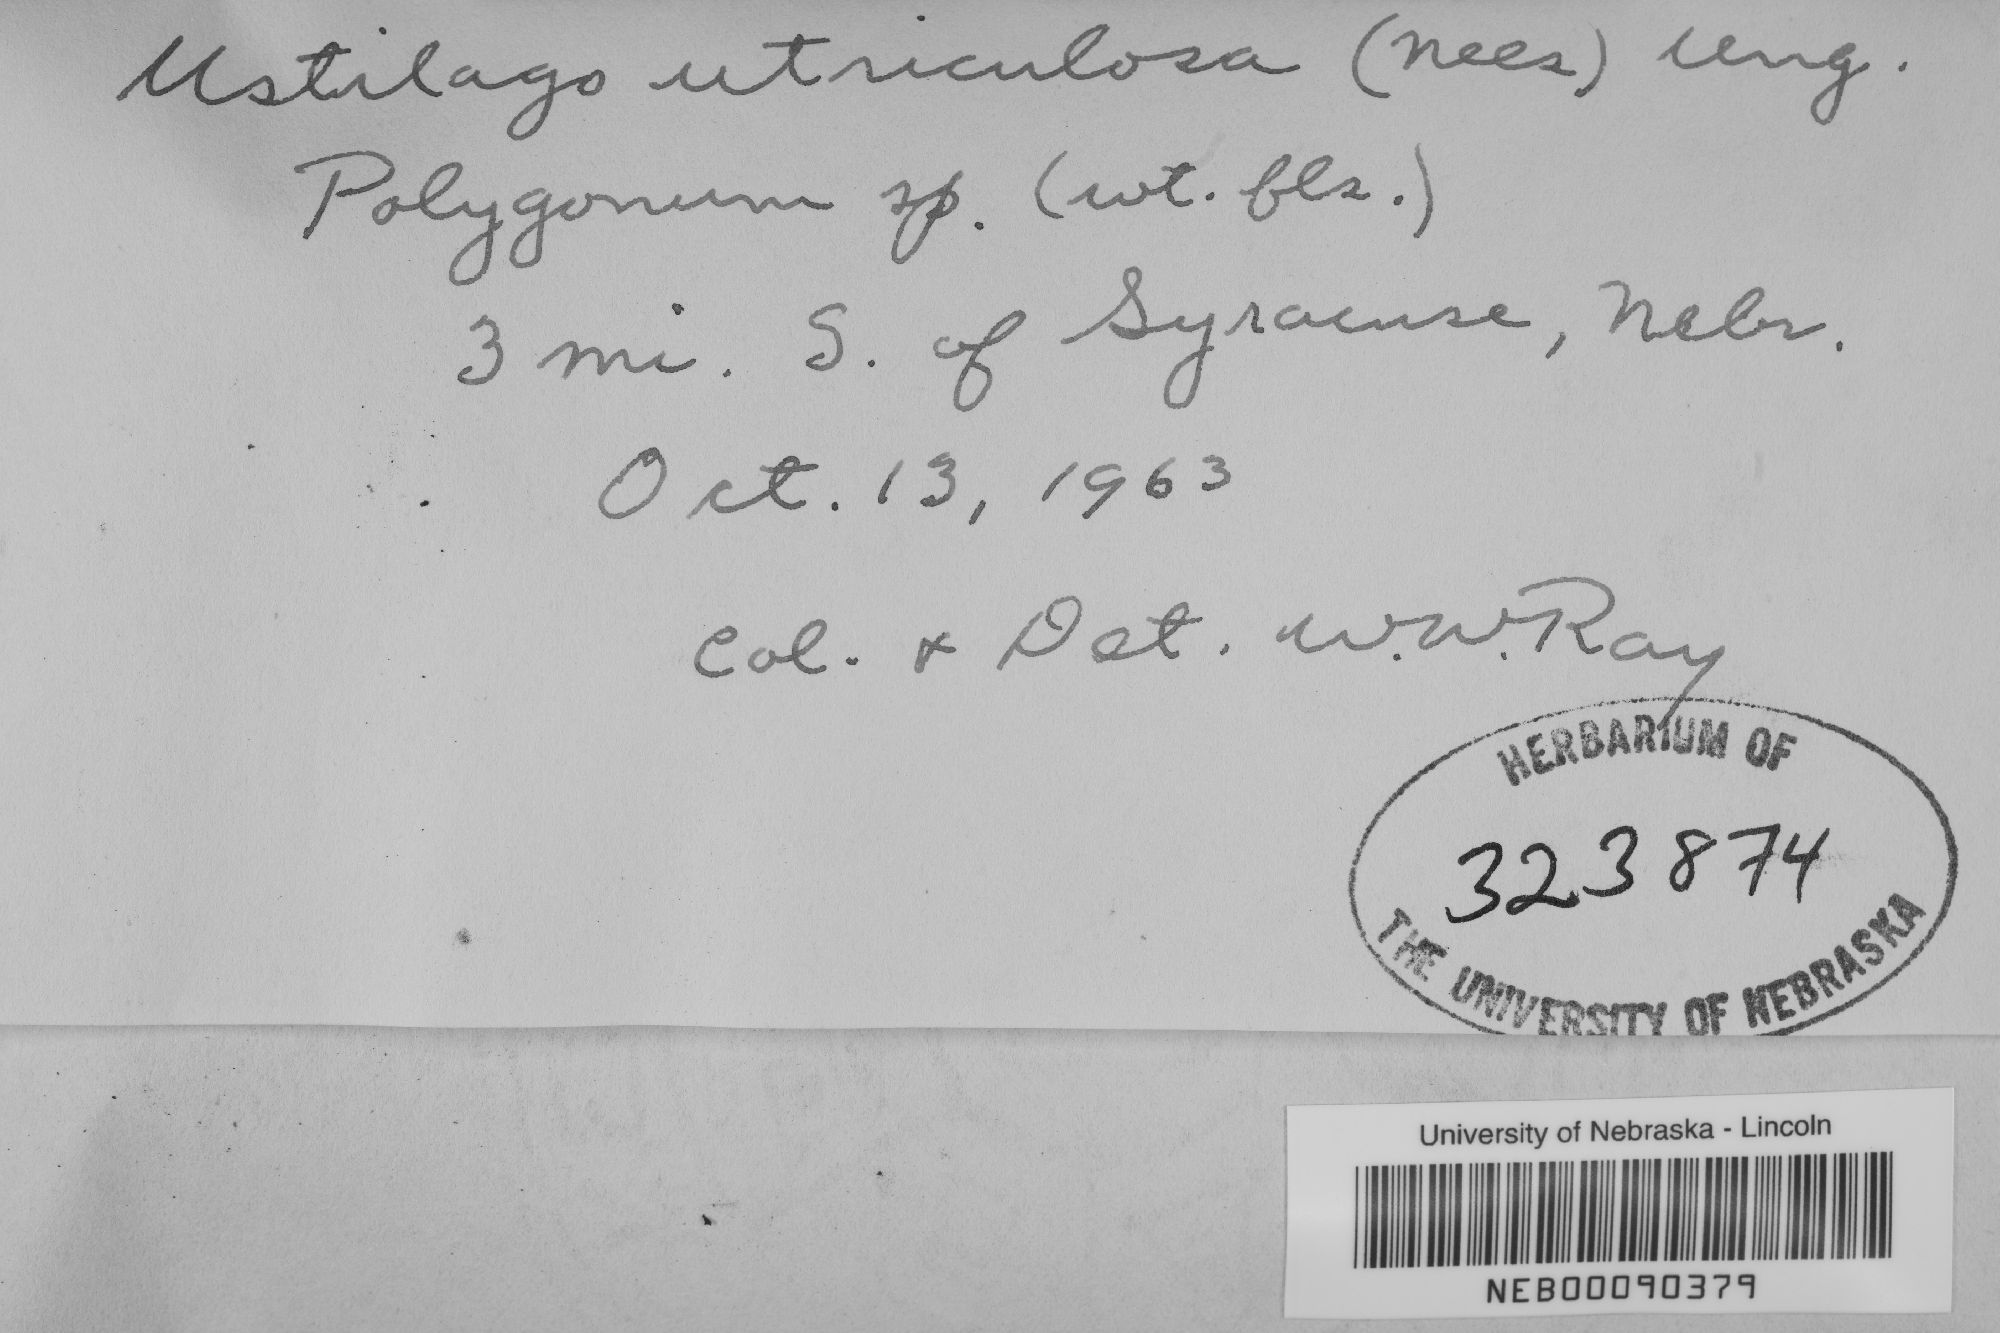 Ustilago utriculosa (Nees) Ung.
Polygonum sp. (wt. fls.)
3 mi. S. of Syracuse, Nebr.
Oct. 13, 1963
Col. & Det. W.W. Ray
HERBARIUM OF
323874
THE UNIVERSITY OF NEBRASKA
University of Nebraska - Lincoln
NEB00090379